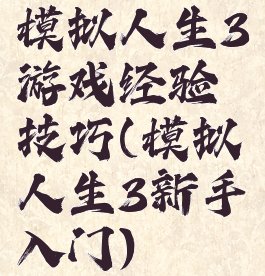 模拟人生3
游戏经验
技巧(模拟
人生3新手
入门)